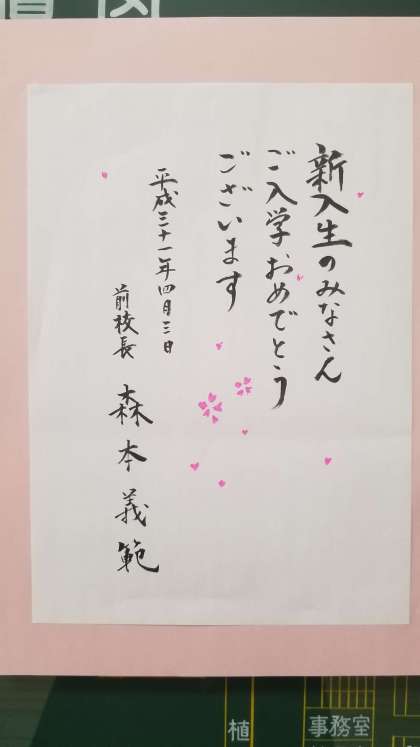 新入生のみなさん
ご入学おめでとう
ございます
平成三十一年四月三日
前校長 森本義範
植
事務室